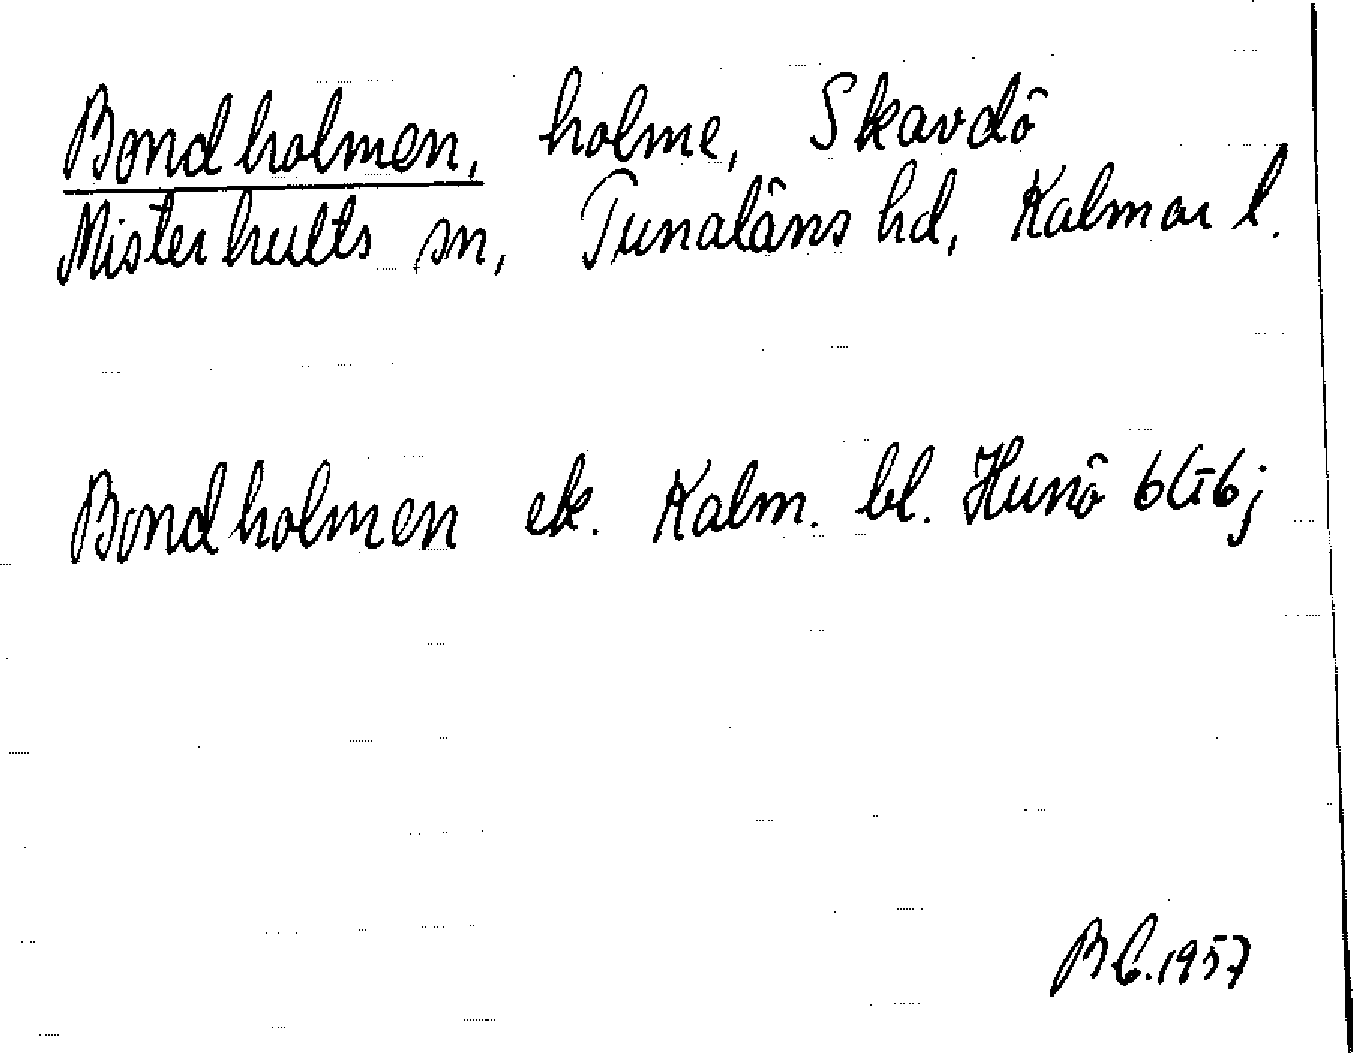 Bondholmen, holme, Skavdö
Misterhults sn, Tunaläns hd, Kalmar l.
Bondholmen ek. Kalm. bl. Hunö 6G6j
B C. 1957